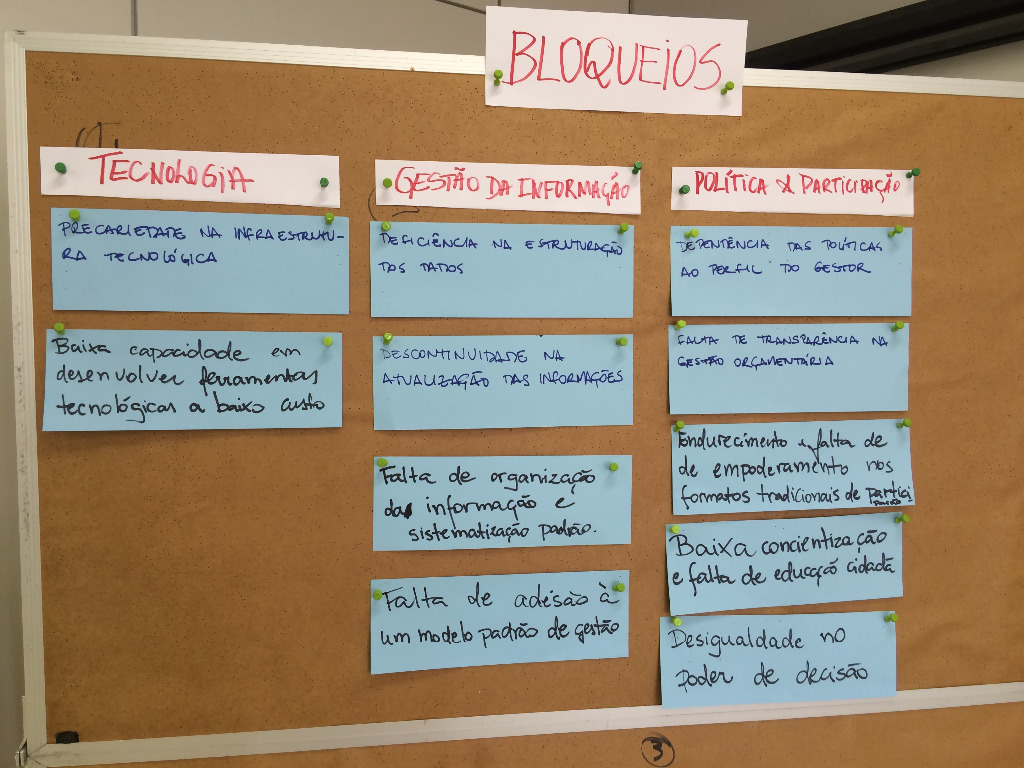 BLOQUEIOS
TECNOLOGIA
PRECARIEDADE NA INFRAESTRUTU-
RA TECNOLÓGICA
Baixa capacidade em
desenvolver ferramentas
tecnológicas a baixo custo
GESTÃO DA INFORMAÇÃO
DEFICIÊNCIA NA ESTRUTURAÇÃO
DOS DADOS
DESCONTINUIDADE NA
ATUALIZAÇÃO DAS INFORMAÇÕES
Falta de organização
da informação e
sistematização padrão.
Falta de adesão à
um modelo padrão de gestão
POLÍTICA & PARTICIPAÇÃO
DEPENDÊNCIA DAS POLÍTICAS
AO PERFIL DO GESTOR
FALTA DE TRANSPARÊNCIA NA
GESTÃO ORÇAMENTÁRIA
Endurecimento e falta de
de empoderamento nos
formatos tradicionais de partici
pação
Baixa concientização
e falta de educação cidadã
Desigualdade no
poder de decisão
3